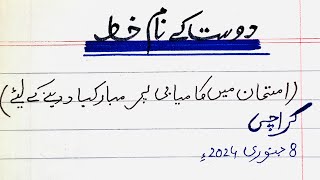 دوست کے نام خط
(امتحان میں کامیابی پر مبارکباد دینے کے لیئے)
کراچی
8 جنوری 2024ء